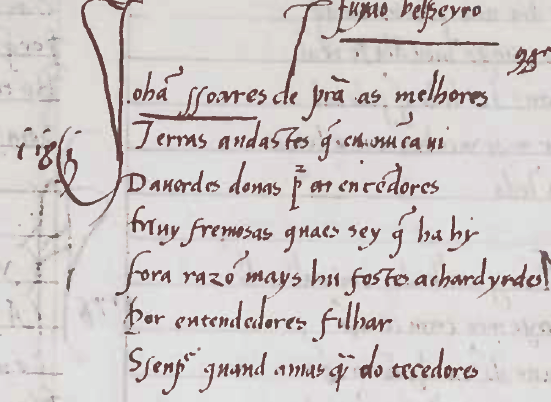 Juião bolsseyro
Johã ssoares de prã as melhores
Terras andastes q̄ eu nūca ui
Dauerdes donas p̄ en entēdedores
Muy fremosas quaes sey q̄ ha hy
fora razō mays hu fostes achar dyrdes
Por entendedores filhar
Ssenpͤ quand amas q̄ʳ do tecedores